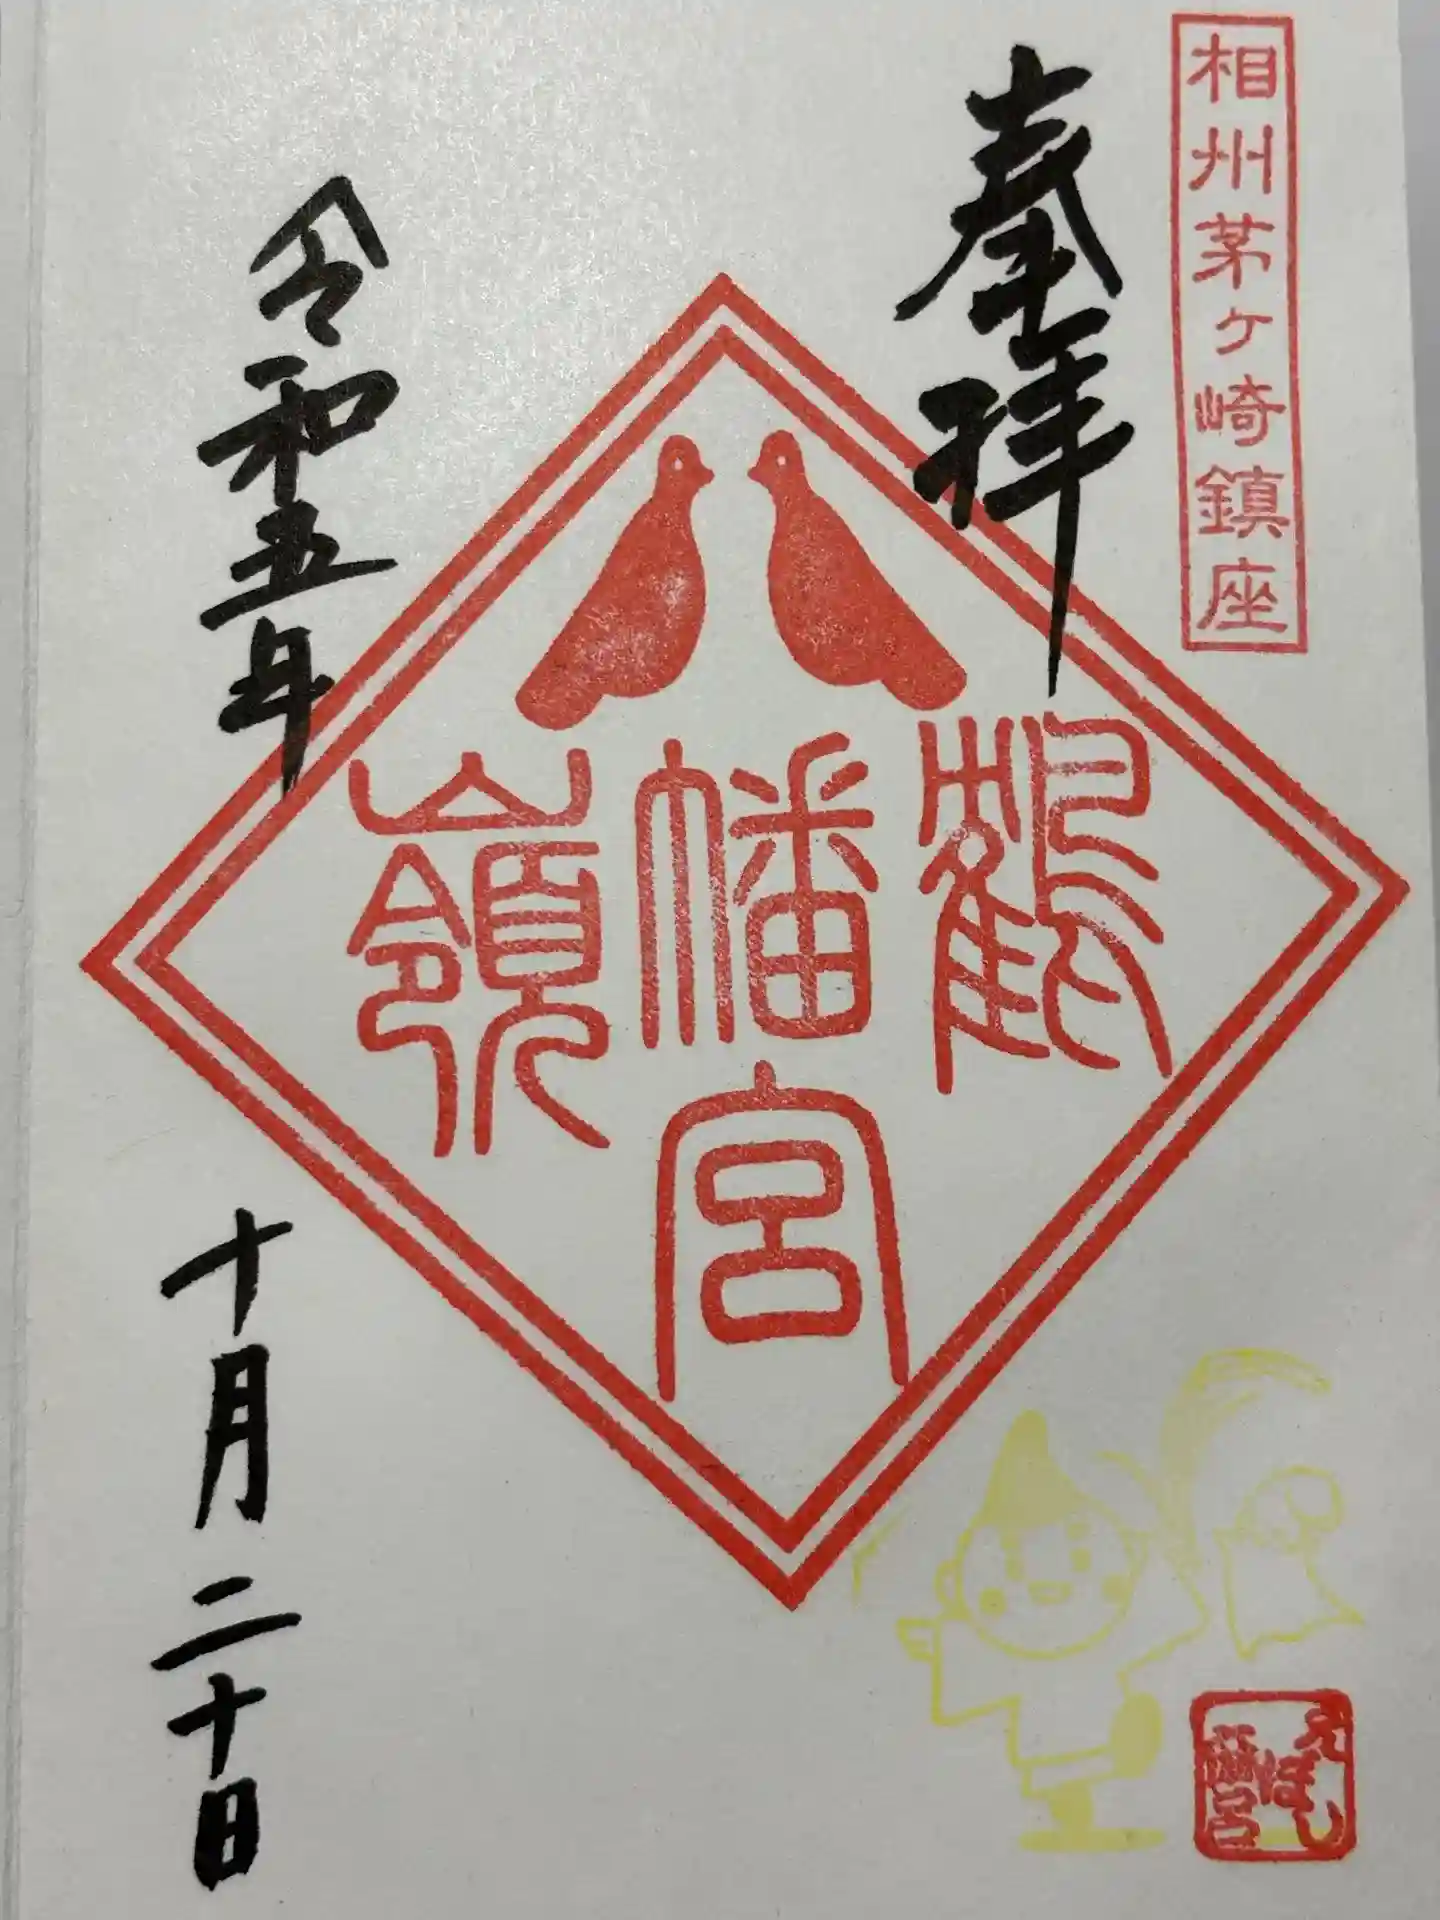 相州茅ヶ崎鎮座
奉拝
鶴嶺
八幡宮
令和五年
十月二十日
えぼし